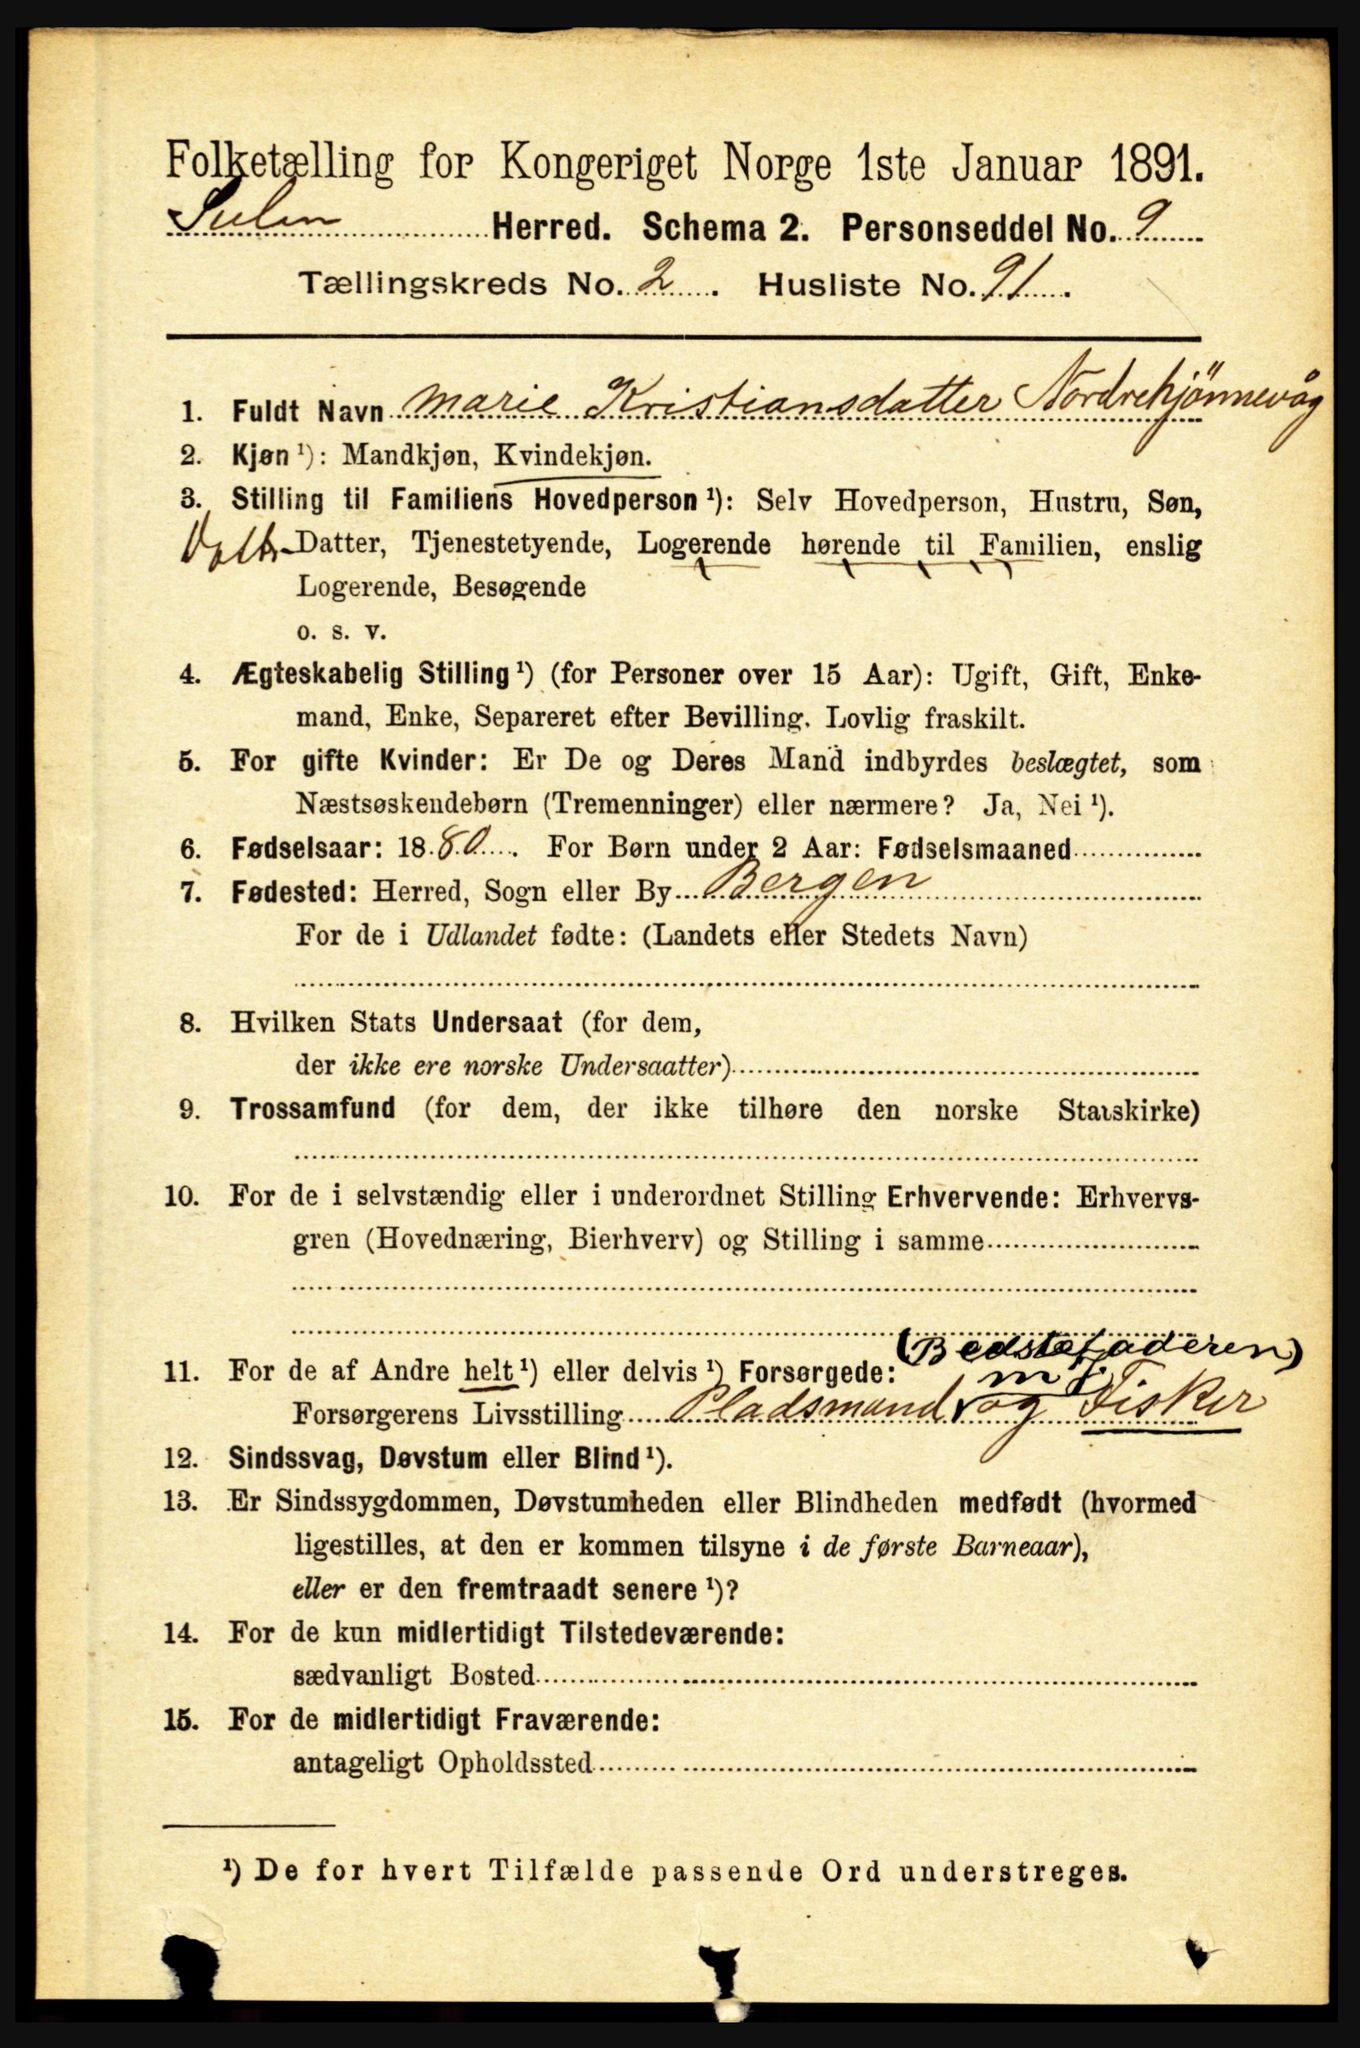 Folketælling for Kongeriget Norge 1ste Januar 1891.
Sulen Herred. Schema 2. Personseddel No. 9
Tællingskreds No. 2. Husliste No. 91.
1. Fuldt Navn Marie Kristiansdatter Nordrehjönnevåg
2. Kjøn ¹): Mandkjøn, Kvindekjøn.
3. Stilling til Familiens Hovedperson ¹): Selv Hovedperson, Hustru, Søn,
Datter, Tjenestetyende, Logerende hørende til Familien, enslig
Logerende, Besøgende
o. s. v.
4. Ægteskabelig Stilling ¹) (for Personer over 15 Aar): Ugift, Gift, Enke-
mand, Enke, Separeret efter Bevilling. Lovlig fraskilt.
5. For gifte Kvinder: Er De og Deres Mand indbyrdes beslægtet, som
Næstsøskendebørn (Tremenninger) eller nærmere? Ja, Nei ¹).
6. Fødselsaar: 1880. For Børn under 2 Aar: Fødselsmaaned
7. Fødested: Herred, Sogn eller By Bergen
For de i Udlandet fødte: (Landets eller Stedets Navn)
8. Hvilken Stats Undersaat (for dem,
der ikke ere norske Undersaatter)
9. Trossamfund (for dem, der ikke tilhøre den norske Statskirke)
10. For de i selvstændig eller i underordnet Stilling Erhvervende: Erhvervs-
gren (Hovednæring, Bierhverv) og Stilling i samme
(Bedstefaderen)
11. For de af Andre helt ¹) eller delvis ¹) Forsørgede: m j.
Forsørgerens Livsstilling Pladsmand og Fisker
12. Sindssvag, Døvstum eller Blind ¹).
13. Er Sindssygdommen, Døvstumheden eller Blindheden medfødt (hvormed
ligestilles, at den er kommen tilsyne i de første Barneaar),
eller er den fremtraadt senere ¹)?
14. For de kun midlertidigt Tilstedeværende:
sædvanligt Bosted
15. For de midlertidigt Fraværende:
antageligt Opholdssted
¹) De for hvert Tilfælde passende Ord understreges.